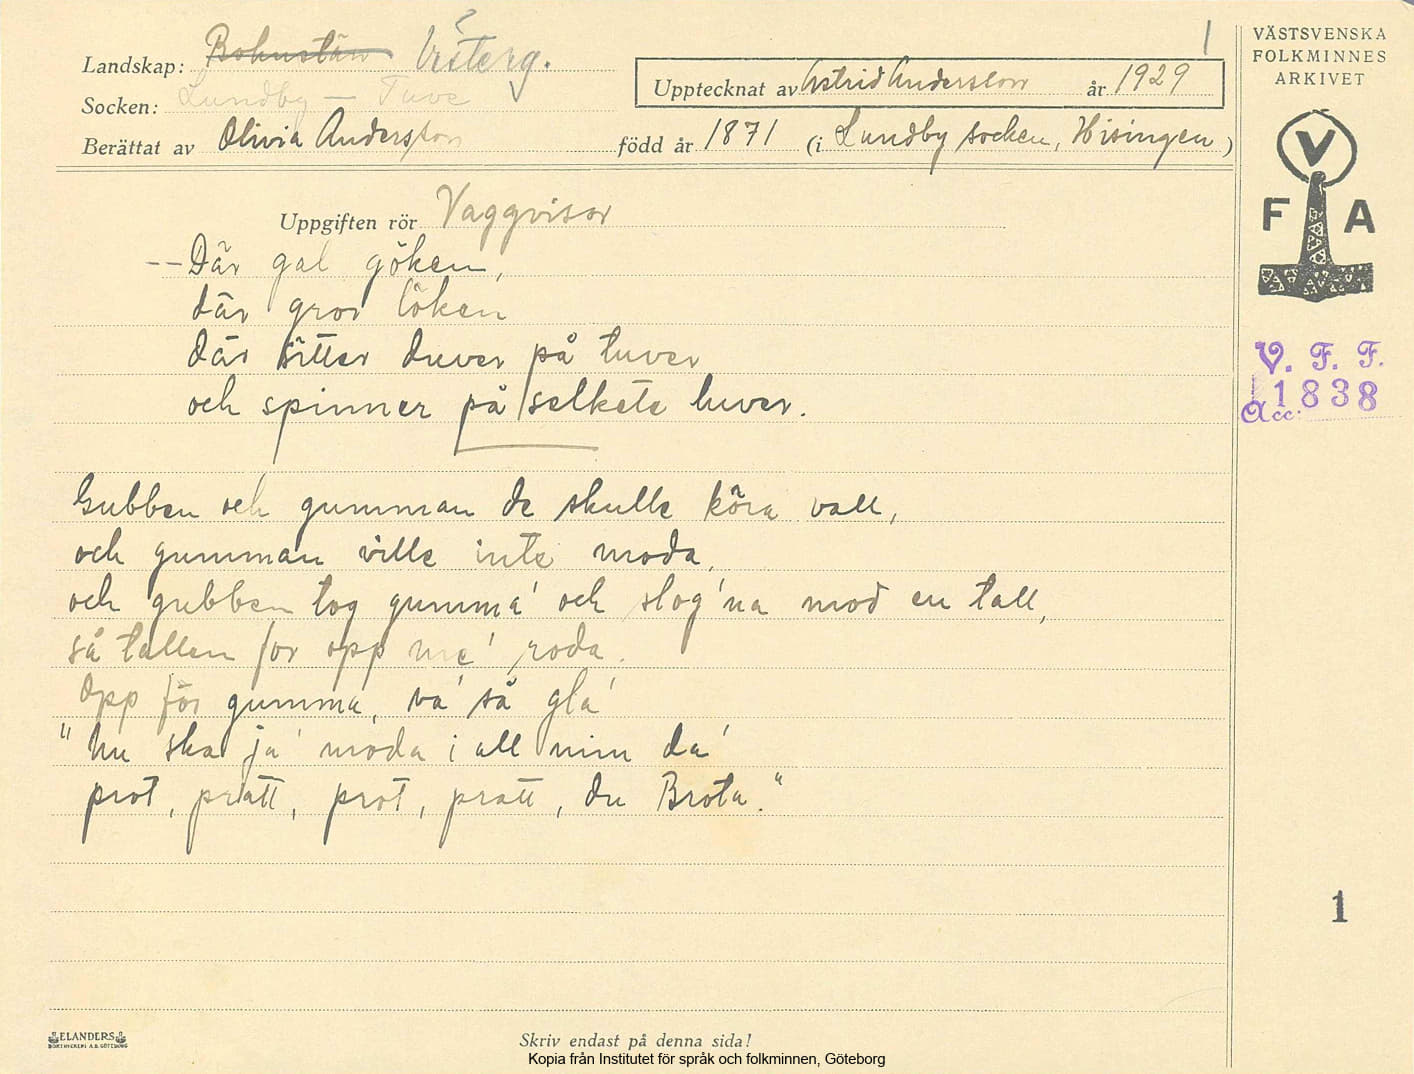 Landskap: Bohuslän Västerg.
Socken: Lundby – Tuve
Berättat av Olivia Andersson född år 1871 (i Lundby socken, Hisingen)
Upptecknat av Astrid Andersson år 1929
1
Uppgiften rör Vaggvisor
-- Där gal göken,
där gror löken
där sitter duver på tuver
och spinner på selkete luver.
Gubben och gumman de skulle köra vall,
och gumman ville inte moda,
och gubben tog gumma' och slog'na mod en tall,
så tallen for opp me' roda.
Opp för gumma, va' så gla'
"Nu ska ja' moda i all min da'
prot, pratt, prot, pratt, du Brota."
VÄSTSVENSKA
FOLKMINNES
ARKIVET
V
F A
V. F. F.
1838
Acc:
1
ELANDERS
BOKTRYCKERI A.B. GÖTEBORG
Skriv endast på denna sida!
Kopia från Institutet för språk och folkminnen, Göteborg